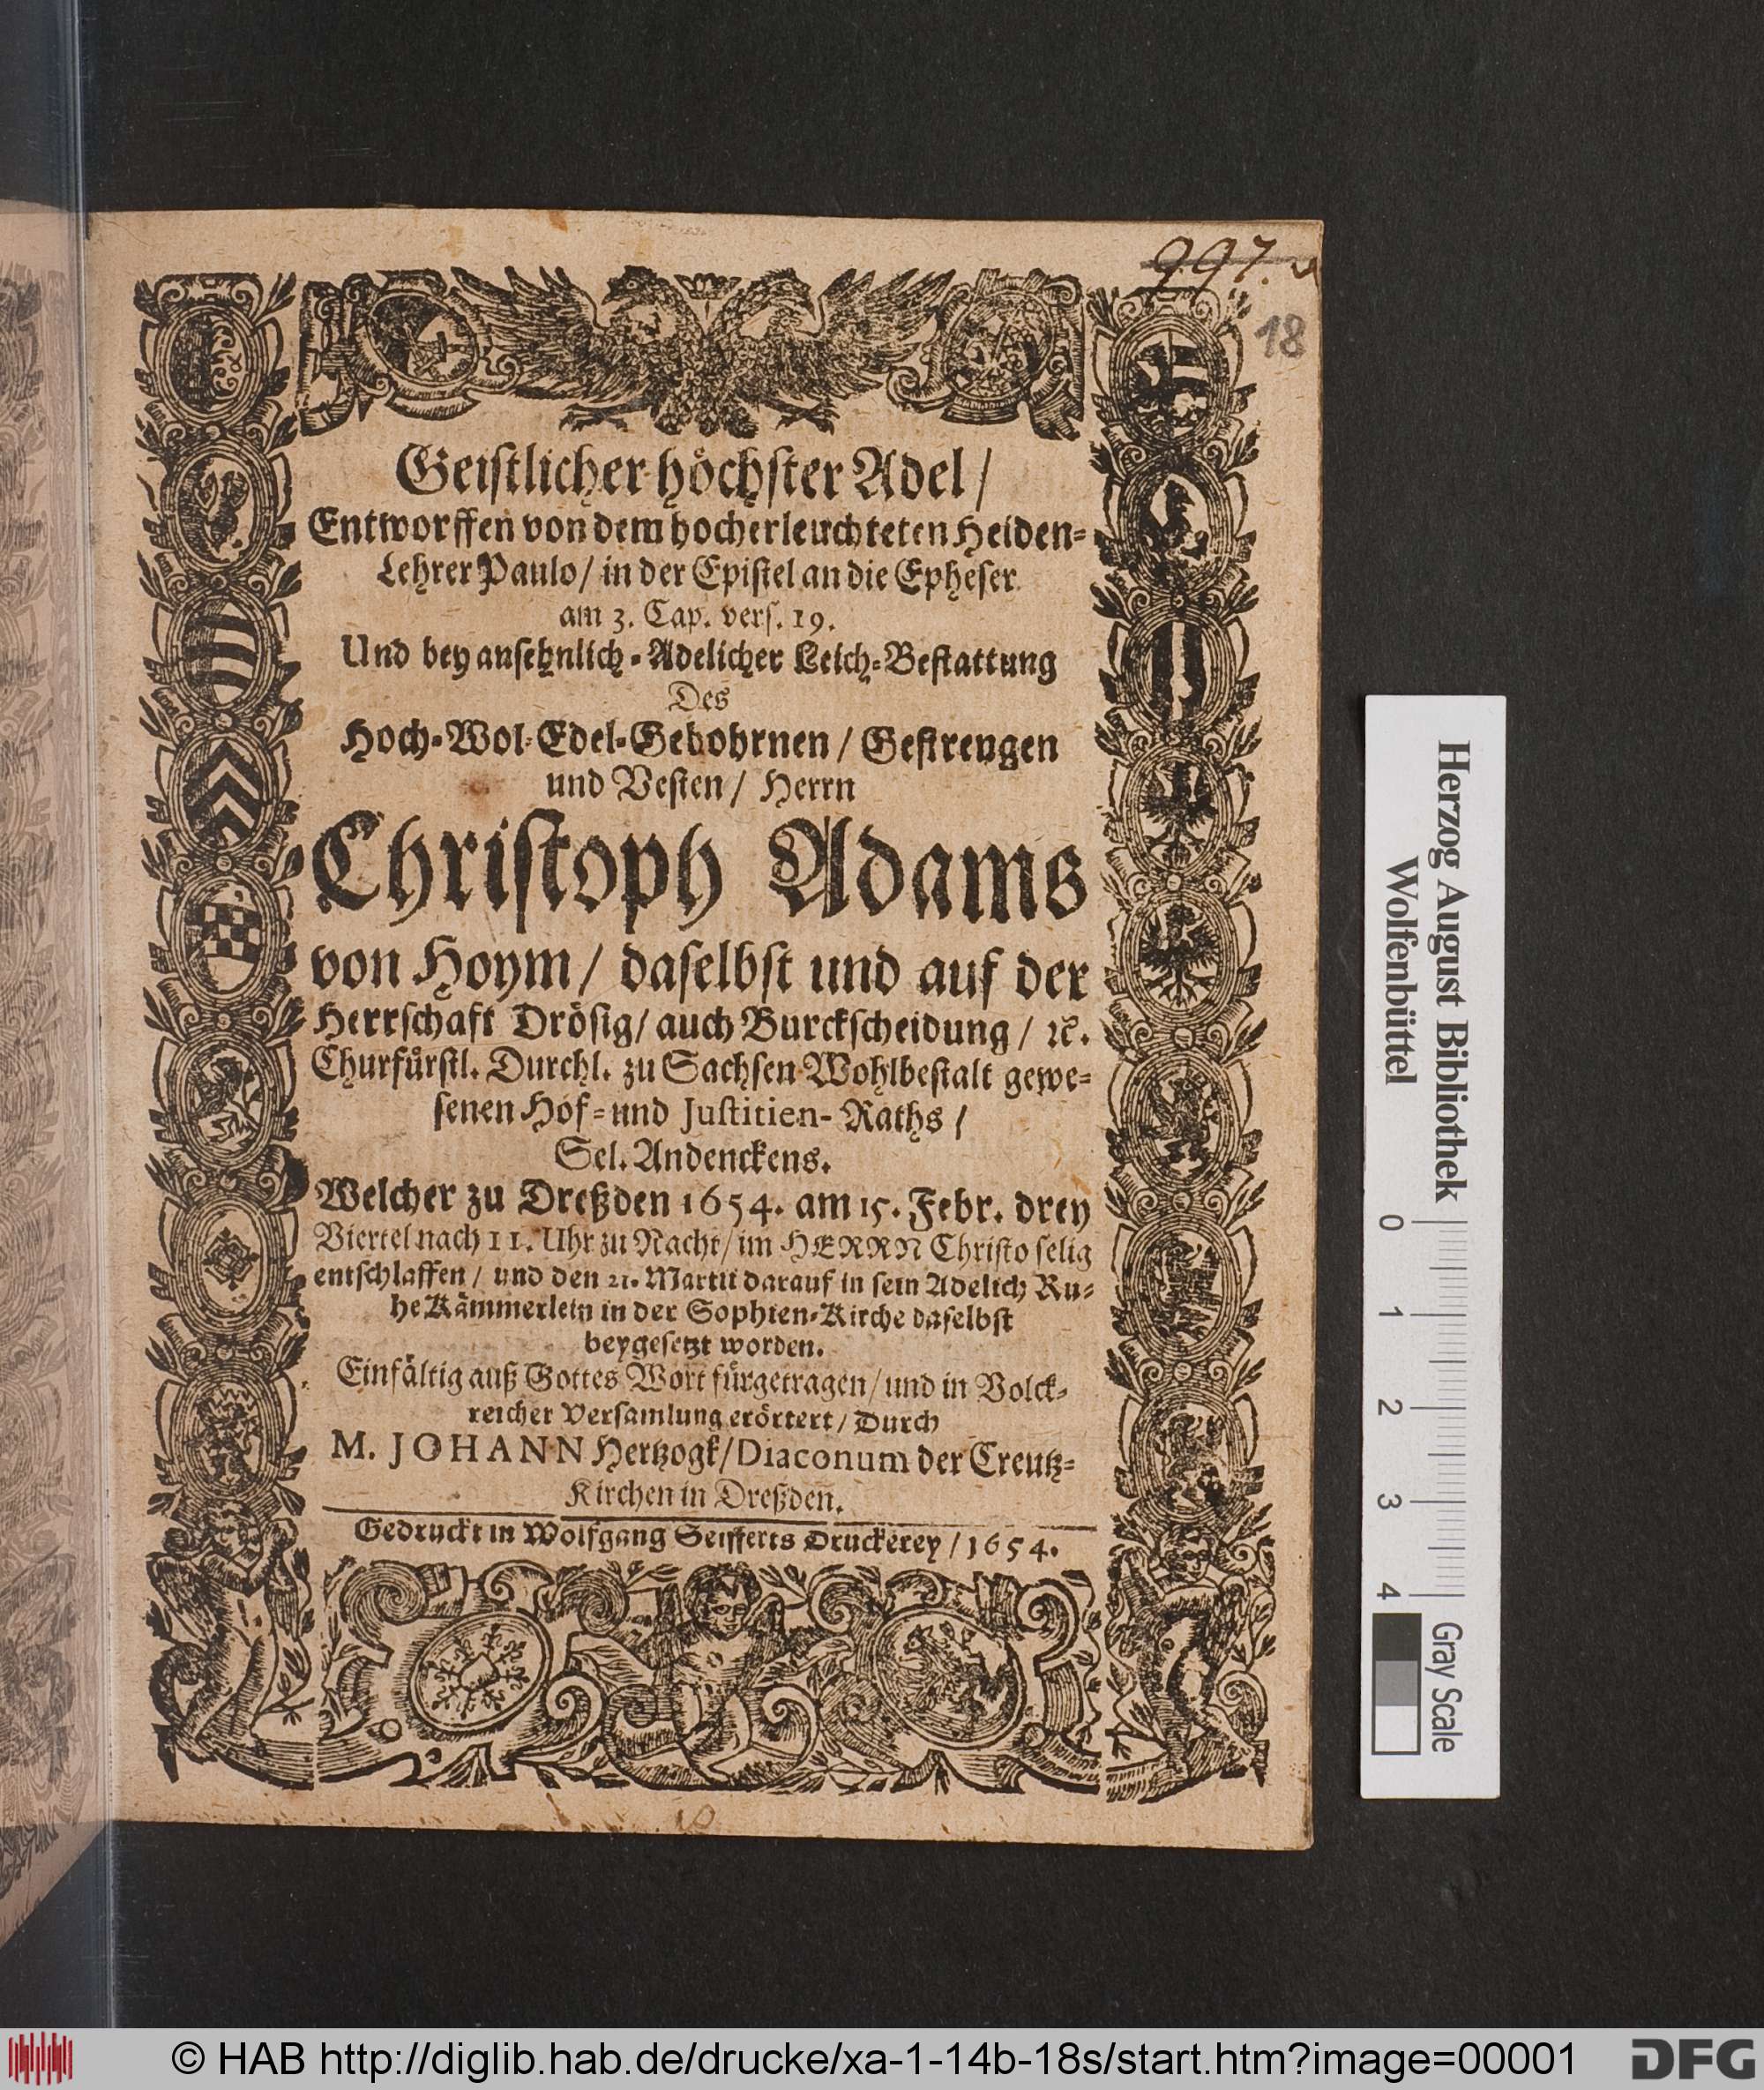 997.
18
Geistlicher höchster Adel /
Entworffen von dem hocherleuchteten Heiden-
Lehrer Paulo / in der Epistel an die Epheser
am 3. Cap. vers. 19.
Und bey ansehnlich-Adelicher Leich-Bestattung
Des
Hoch-Wol-Edel-Gebohrnen / Gestrengen
und Vesten / Herrn
Christoph Adams
von Hoym / daselbst und auf der
Herrschaft Drösig / auch Burckscheidung / ꝛc.
Churfürstl. Durchl. zu Sachsen Wohlbestalt gewe-
senen Hof- und Justitien-Raths /
Sel. Andenckens.
Welcher zu Dreßden 1654. am 15. Febr. drey
Viertel nach 11. Uhr zu Nacht / im HERRN Christo selig
entschlaffen / und den 21. Martii darauf in sein Adelich Ru-
he Kämmerlein in der Sophien-Kirche daselbst
beygesetzt worden.
Einfältig auß Gottes Wort fürgetragen / und in Volck-
reicher Versamlung erörtert / Durch
M. JOHANN Hertzogk / Diaconum der Creutz-
Kirchen in Dreßden.
Gedruckt in Wolfgang Seifferts Druckerey / 1654.
Herzog August Bibliothek
Wolfenbüttel
0 1 2 3 4
Gray Scale
© HAB http://diglib.hab.de/drucke/xa-1-14b-18s/start.htm?image=00001
DFG